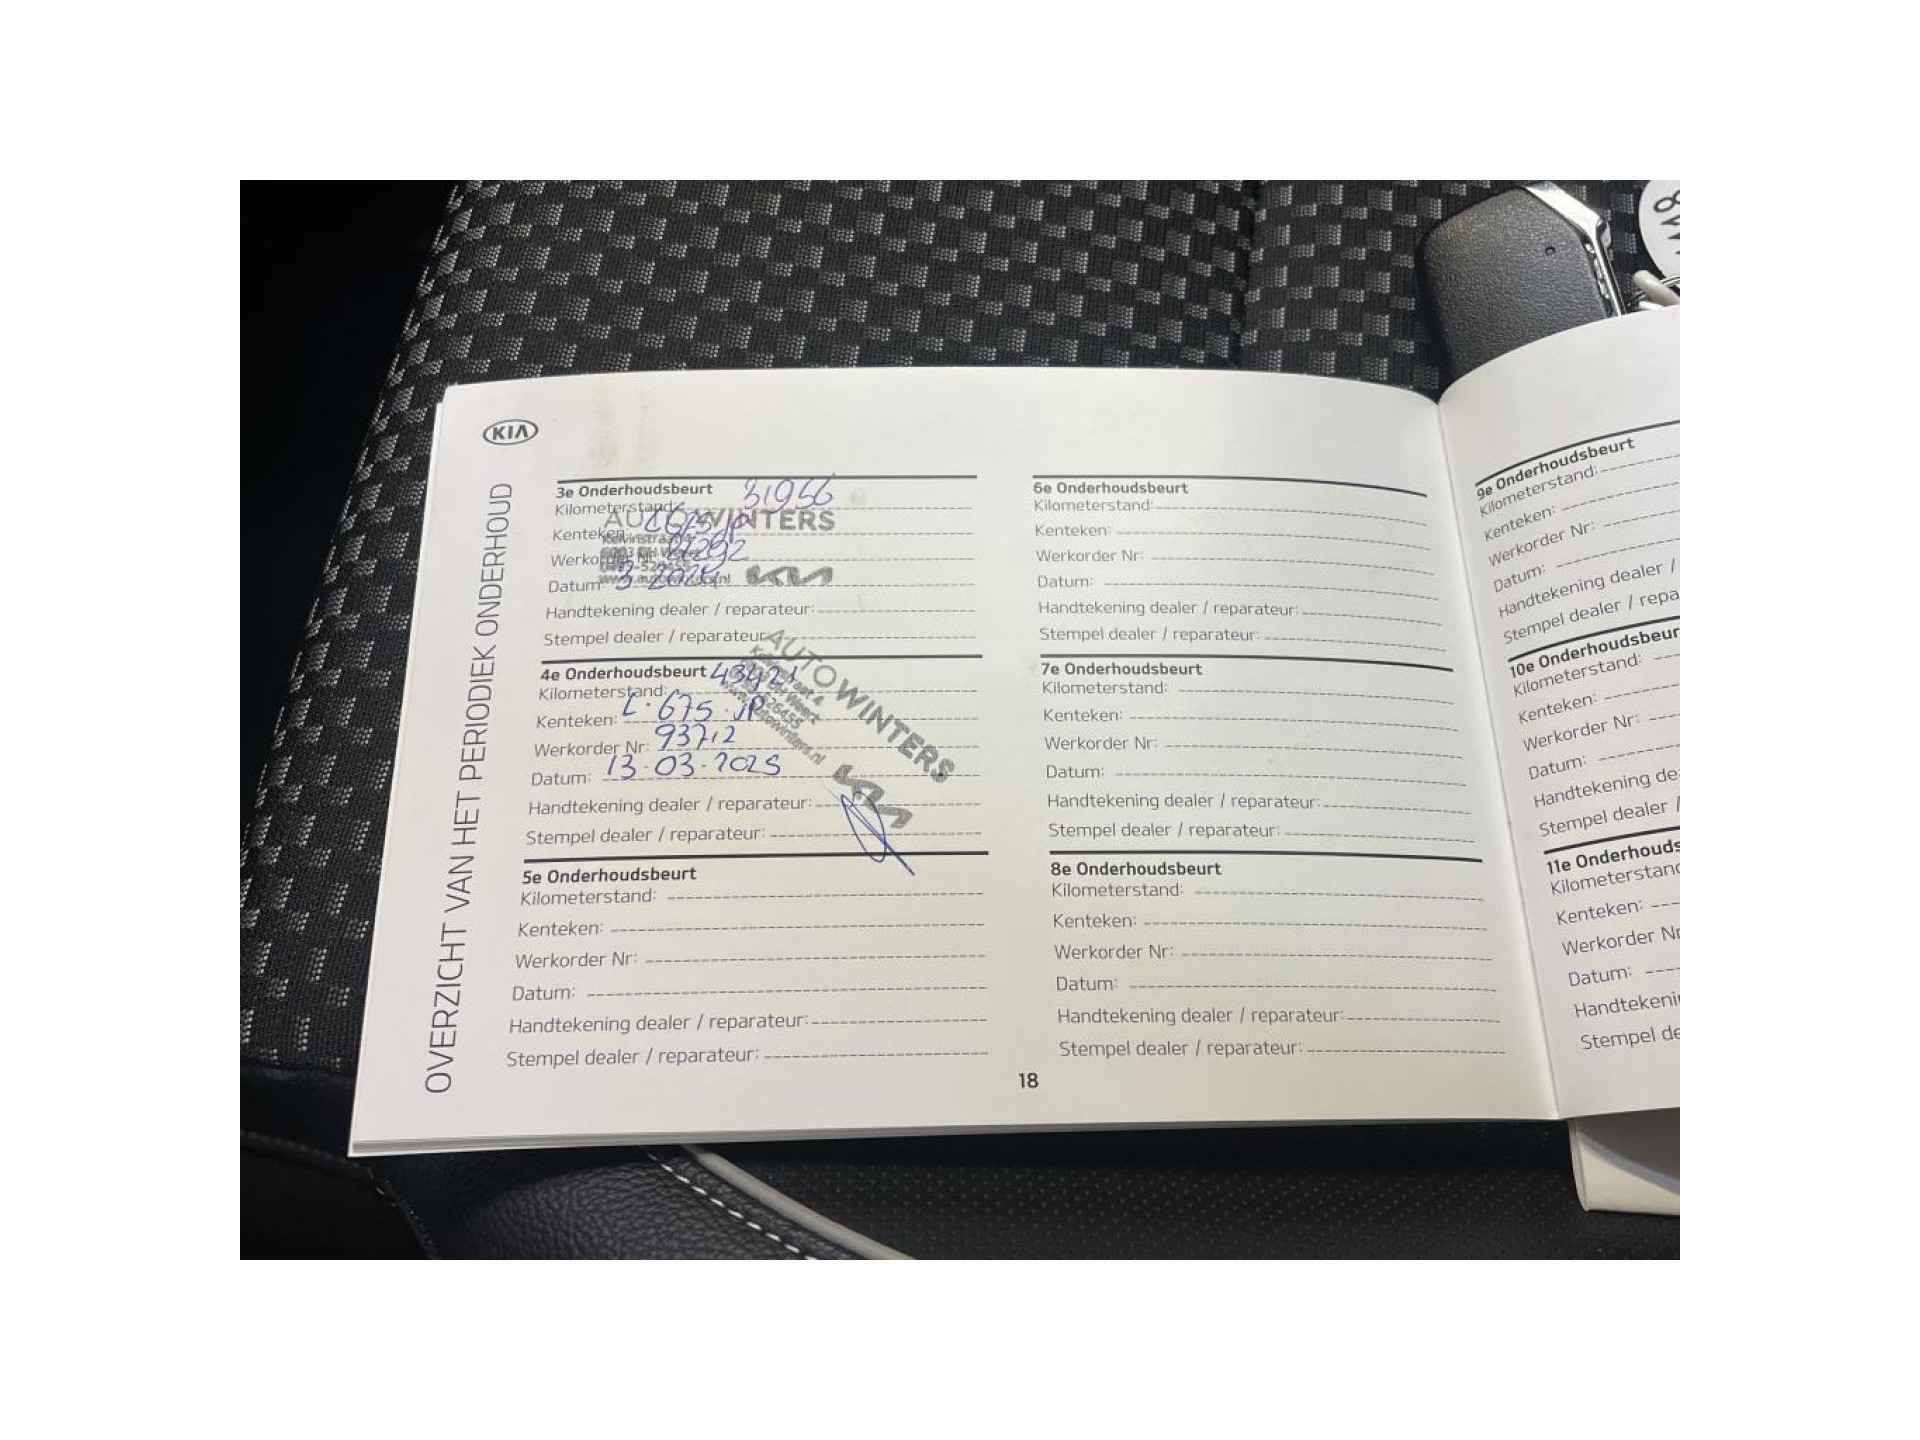 KIA
OVERZICHT VAN HET PERIODIEK ONDERHOUD
3e Onderhoudsbeurt 31956
Kilometerstand:
AUTOWINTERS
Kenteken: L675JP
Kelvinstraat 4
Werkorder Nr:
Datum:
Handtekening dealer / reparateur:
Stempel dealer / reparateur:
4e Onderhoudsbeurt
Kilometerstand:
Kenteken: L·675·JP
Werkorder Nr: 93712
Datum: 13-03-2025
Handtekening dealer / reparateur:
Stempel dealer / reparateur:
AUTOWINTERS
Kelvinstraat 4
www.autowinters.nl
KIA
5e Onderhoudsbeurt
Kilometerstand:
Kenteken:
Werkorder Nr:
Datum:
Handtekening dealer / reparateur:
Stempel dealer / reparateur:
6e Onderhoudsbeurt
Kilometerstand:
Kenteken:
Werkorder Nr:
Datum:
Handtekening dealer / reparateur:
Stempel dealer / reparateur:
7e Onderhoudsbeurt
Kilometerstand:
Kenteken:
Werkorder Nr:
Datum:
Handtekening dealer / reparateur:
Stempel dealer / reparateur:
8e Onderhoudsbeurt
Kilometerstand:
Kenteken:
Werkorder Nr:
Datum:
Handtekening dealer / reparateur:
Stempel dealer / reparateur:
18
9e Onderhoudsbeurt
Kilometerstand:
Kenteken:
Werkorder Nr:
Datum:
Handtekening dealer /
Stempel dealer / repa
10e Onderhoudsbeur
Kilometerstand:
Kenteken:
Werkorder Nr:
Datum:
Handtekening de
Stempel dealer /
11e Onderhouds
Kilometerstand
Kenteken:
Werkorder Nr
Datum:
Handtekeni
Stempel de